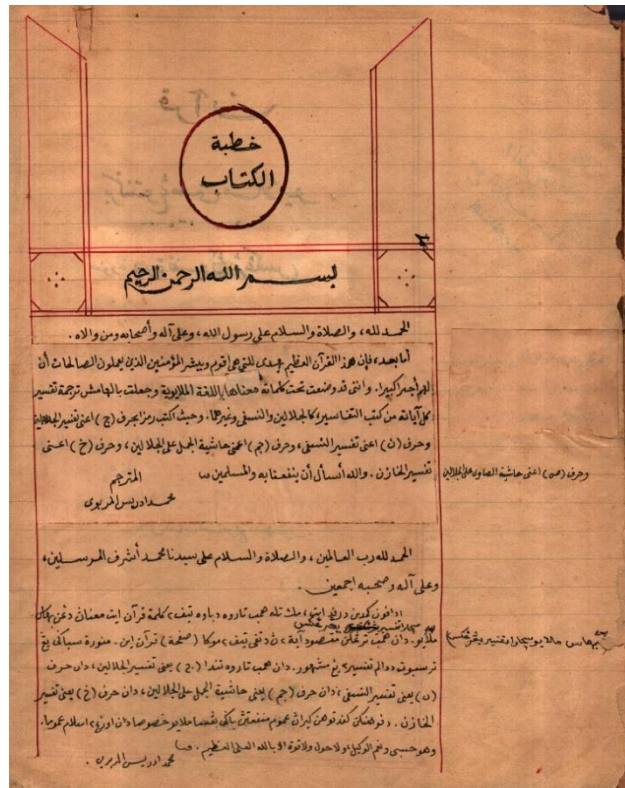 خطبة
الكتاب
بسم الله الرحمن الرحيم
الحمد لله، والصلاة والسلام على رسول الله، وعلى آله وأصحابه ومن والاه.
أما بعد، فإن هذا القرآن العظيم يهدى للتى هى أقوم ويبشر المؤمنين الذين يعملون الصالحات أن
لهم أجرا كبيرا. وانى قد وضعت تحت كلماته معناها باللغة الملايوية وجعلت بالهامش ترجمة تفسير
كل آياته من كتب التفاسير كالجلالين والنسفى وغيرهما. وحيث كتب رمز بحرف (ج) اعنى تفسير الجلالين
وحرف (ن) اعنى تفسير النسفى، وحرف (جم) اعنى حاشية الجمل على الجلالين، وحرف (خ) اعنى
تفسير الخازن. والله أسأل أن ينفعنا به والمسلمين
المترجم
محمد ادريس المربوى
وحرف (ص) اعنى حاشية الصاوى على الجلالين
الحمد لله رب العالمين، والصلاة والسلام على سيدنا محمد أشرف المرسلين،
وعلى آله وصحبه اجمعين.
ادافون كمدين درفد ايت، مك تله همب تاروه دباوه تيف٢ كلمة قرآن ايت معنان دغن بهاس
ملايو. دان همب ترغكن مقصود آية٢ ن دتفى تيف٢ موك (صفحة) قرآن اين. منورة سباكى يغ
ترسبوت ددالم تفسير٢ يغ مشهور. دان همب تاروه تندا (ج) يعنى تفسير الجلالين، دان حرف
(ن) يعنى تفسير النسفى، دان حرف (جم) يعنى حاشية الجمل على الجلالين، دان حرف (خ) يعنى تفسير
الخازن. عموم منفعتن باكى بغسا ملايو خصوصا دان اورغ٢ اسلام عموما.
وهو حسبى ونعم الوكيل، ولا حول ولا قوة الا بالله العلى العظيم.
محمد ادريس المربوى.
بهاس ملايو